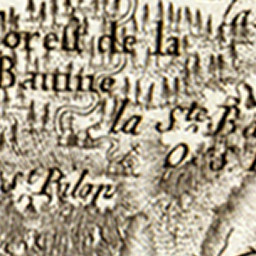 orest de la
Bautine
la Ste. Ba
O S
St. Pilop